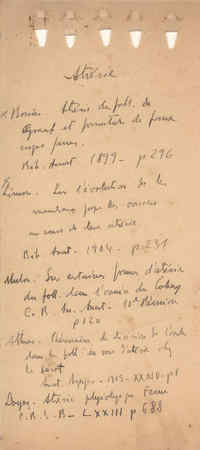 Atrésie
Bouin. Atrésie du foll. de
Graaf et formation de faux
corps jaunes.
Bib. Anat. 1899 - p 296
Limon. Sur l'évolution de la
membrane propre des ovisacs
au cours de leur atrésie.
Bib. Anat - 1904 - p 231
Mulon. Sur certaines formes d'atrésie
du foll. dans l'ovaire du Cobaye
C. R. As. Anat. - Réunion
p 120
Athias. Phénomènes de division de l'ovule
dans les foll. en voie d'atrésie chez
le
Anat. Anzeiger - XXXIV - p 1
Atrésie physiologique
C. R. S. B - LXXIII p 688